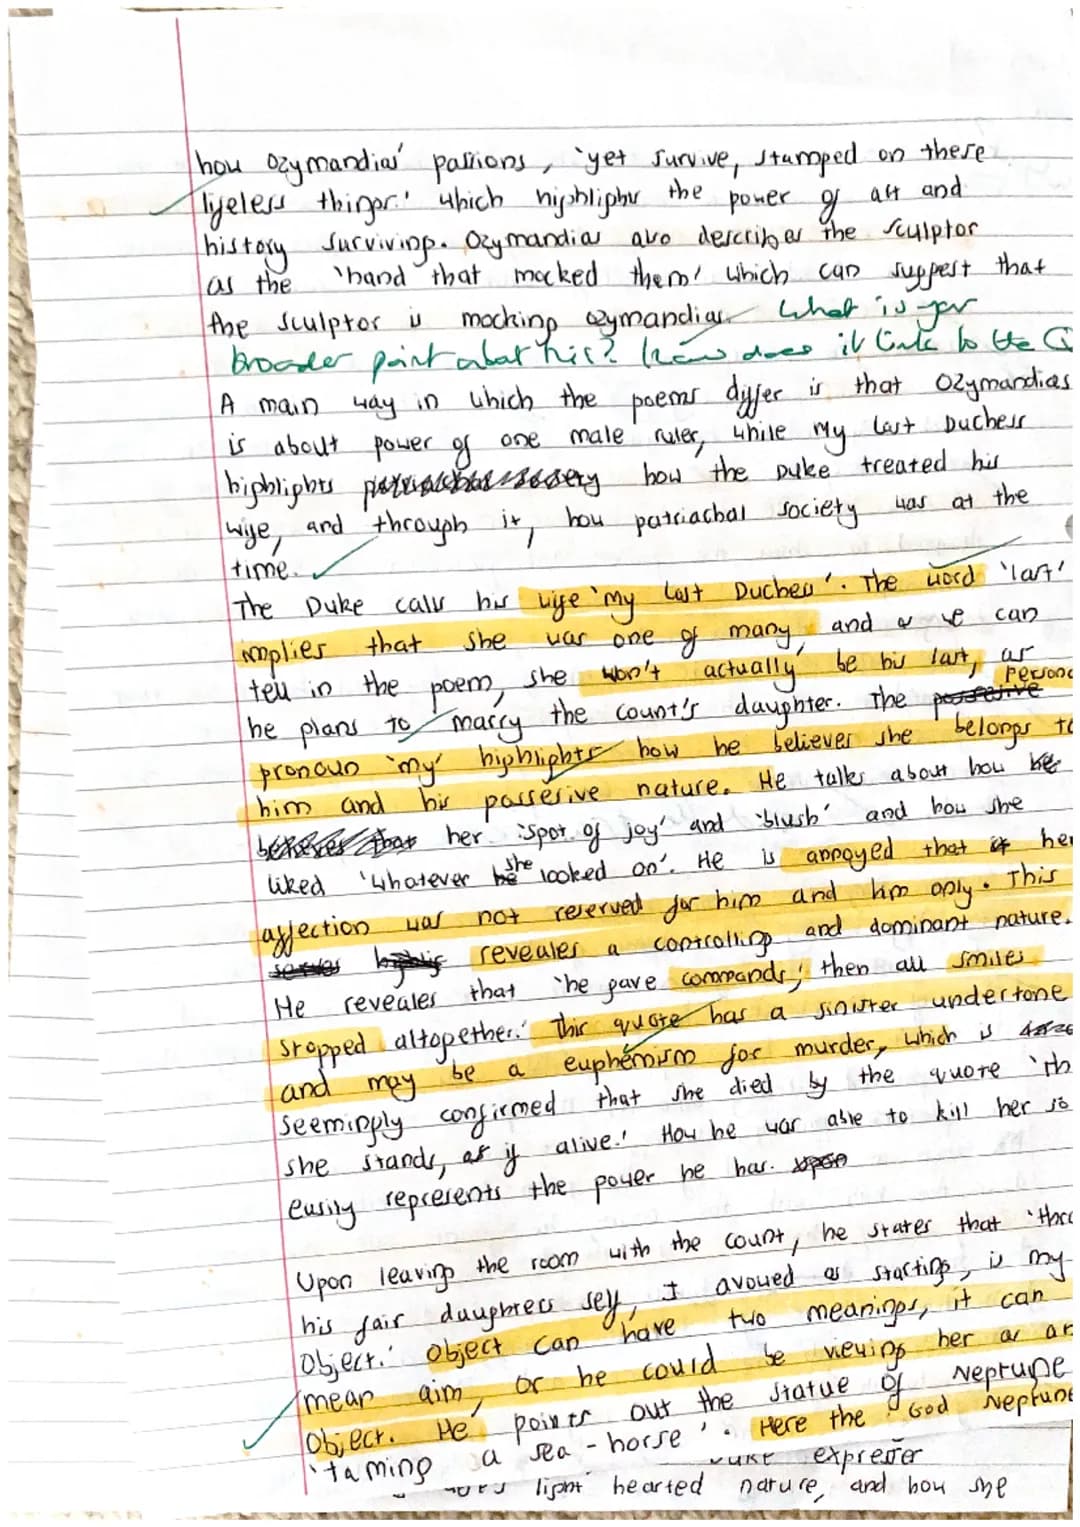 how Ozymandias' passions, 'yet survive, stamped on these
lifeless things.' which highlights the power of art and
history surviving. Ozymandias also describes the sculptor
as the 'hand that mocked them' which can suggest that
the sculptor is mocking ozymandias. What is your
broader point about this? How does it link to the Q
A main way in which the poems differ is that Ozymandias
is about power of one male ruler, while My Last Duchess
highlights how the Duke treated his
wife, and through it, how patriachal society was at the
time.
The Duke calls his wife 'my Last Duchess'. The word 'last'
implies that she was one of many, and as we can
tell in the poem, she won't actually be his last, as
he plans to marry the count's daughter. The possessive persona
pronoun 'my' highlights how he believes she belongs to
him and his possesive nature. He talks about how he
believes that her 'spot of joy' and 'blush' and how she
liked 'whatever he she looked on'. He is annoyed that if her
affection was not reserved for him and him only. This
reveales a controlling and dominant nature.
He reveales that 'he gave commands; then all smiles
stopped altogether.' This quote has a sinister undertone
and may be a euphemism for murder, which is
seemingly confirmed that she died by the quote 'th
she stands, as if alive.' How he was able to kill her so
easily represents the power he has. upon
Upon leaving the room with the count, he states that 'thou
his fair daughters self, I avowed as starting, is my
object.' Object can have two meanings, it can
mean aim, or he could be viewing her as an
object. He points out the statue of Neptune
'taming a sea-horse'. Here the God Neptune
Duke expresser
light hearted nature, and how she